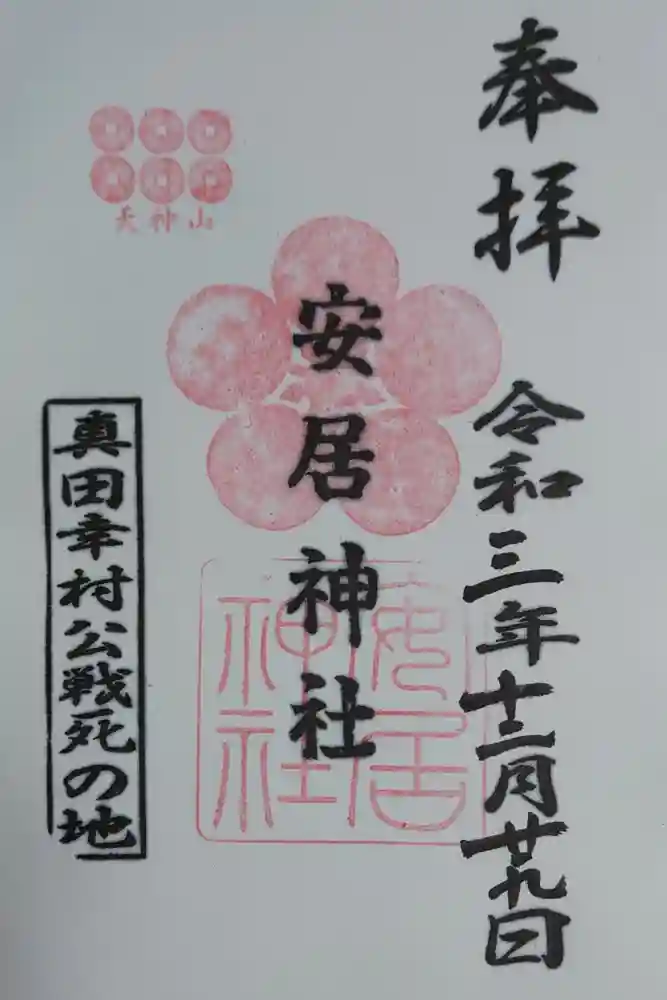 奉拝
令和三年十二月廿九日
安居神社
安居
神社
天神山
真田幸村公戦死の地